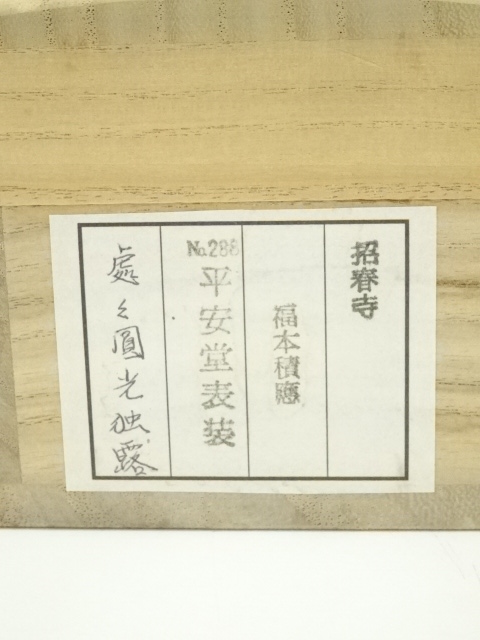 招春寺
福本積應
No.288
平安堂表装
處々圓光独露